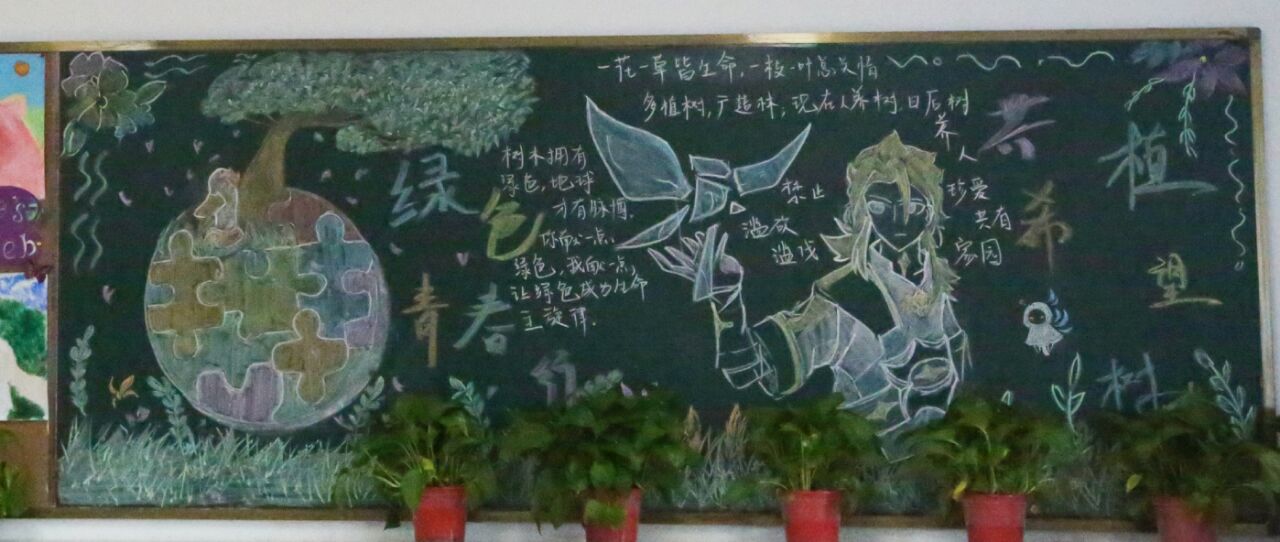 一花一草皆生命,一枝一叶总关情
多植树,广造林,现在人养树,日后树
养人
绿色
青春行
树木拥有
绿色,地球
才有脉搏.
一点
绿色,我 一点,
让绿色成为生命
主旋律.
禁止
滥砍
滥伐
珍爱
共有
家园
植
希
望
树